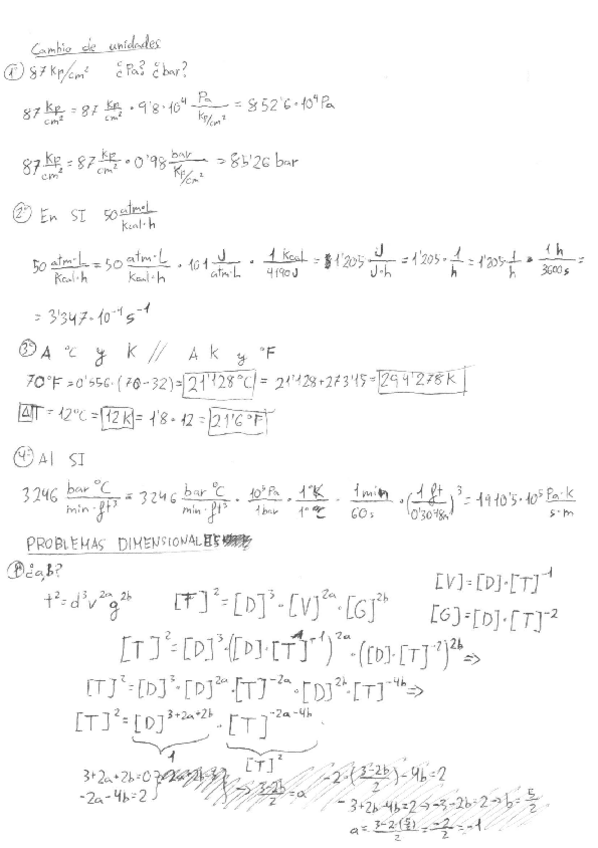 Cambio de unidades
1º 87 Kp/cm² ¿Pa? ¿bar?
87 Kp/cm² = 87 Kp/cm² · 9'8·10⁴ Pa/(Kp/cm²) = 852'6·10⁴ Pa
87 Kp/cm² = 87 Kp/cm² · 0'98 bar/(Kp/cm²) = 85'26 bar
2º En SI 50 atm·L/Kcal·h
50 atm·L/Kcal·h = 50 atm·L/Kcal·h · 101 J/atm·L · 1 Kcal/4190J = 1'205 J/J·h = 1'205 · 1/h = 1'205 1/h · 1h/3600s =
= 3'347·10⁻⁴ s⁻¹
3º A ºC y K // A K y ºF
70ºF = 0'556·(70-32) = 21'128ºC = 21'128+273'15 = 294'278K
ΔT = 12ºC = 12K = 1'8·12 = 21'6ºF
4º Al SI
3246 bar ºC/min·ft³ = 3246 bar ºC/min·ft³ · 10⁵Pa/1bar · 1ºK/1ºC · 1min/60s · (1ft/0'3048m)³ = 1910'5·10⁵ Pa·K/s·m
PROBLEMAS DIMENSIONALES
1º ¿a,b?
t² = d³v²ᵃg²ᵇ [T]² = [D]³·[V]²ᵃ·[G]²ᵇ [V]=[D]·[T]⁻¹
[G]=[D]·[T]⁻²
[T]² = [D]³·([D]·[T]⁻¹)²ᵃ·([D]·[T]⁻²)²ᵇ ⇒
[T]² = [D]³·[D]²ᵃ·[T]⁻²ᵃ·[D]²ᵇ·[T]⁻⁴ᵇ ⇒
[T]² = [D]³⁺²ᵃ⁺²ᵇ·[T]⁻²ᵃ⁻⁴ᵇ
1 [T]²
3+2a+2b=0
-2a-4b=2
⇒ 3-2b/2 = a
-2·(3-2b/2)-4b=2
-3+2b-4b=2 → -3-2b=2 → b=5/2
a = 3-2·(5/2)/2 = -2/2 = -1